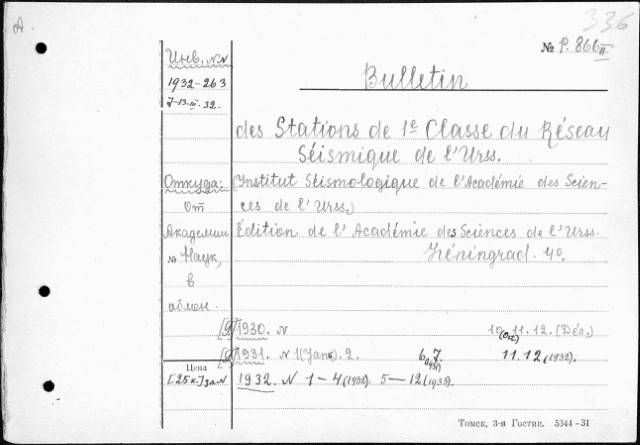 A.
336
№ P. 866 II
Инв. №№
1932-263
7-13.III.32.
Bulletin
des Stations de 1e Classe du Réseau
Séismique de l'Urss.
Откуда:
От
Академии
№ Наук,
в
обмен.
(Institut Séismologique de l'Académie des Scien-
ces de l'Urss.)
Édition de l'Académie des Sciences de l'Urss.
Léningrad. 4o.
[9] 1930. N 10 (Oct.) 11. 12. (Déc.)
[9] 1931. N 1 (Janv.) 2. 6, 7. 11. 12 (1932).
Цена
[25 к.] за N
1932. N 1-4 (1932). 5-12 (1933).
Томск, 3-я Гостип. 5344-31